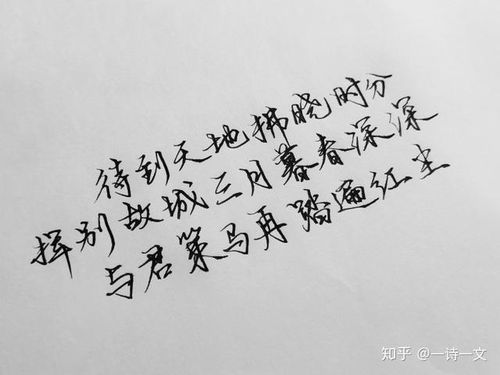 待到天地拂晓时分
挥别故城三月暮春深深
与君策马再踏遍红尘
知乎 @一诗一文